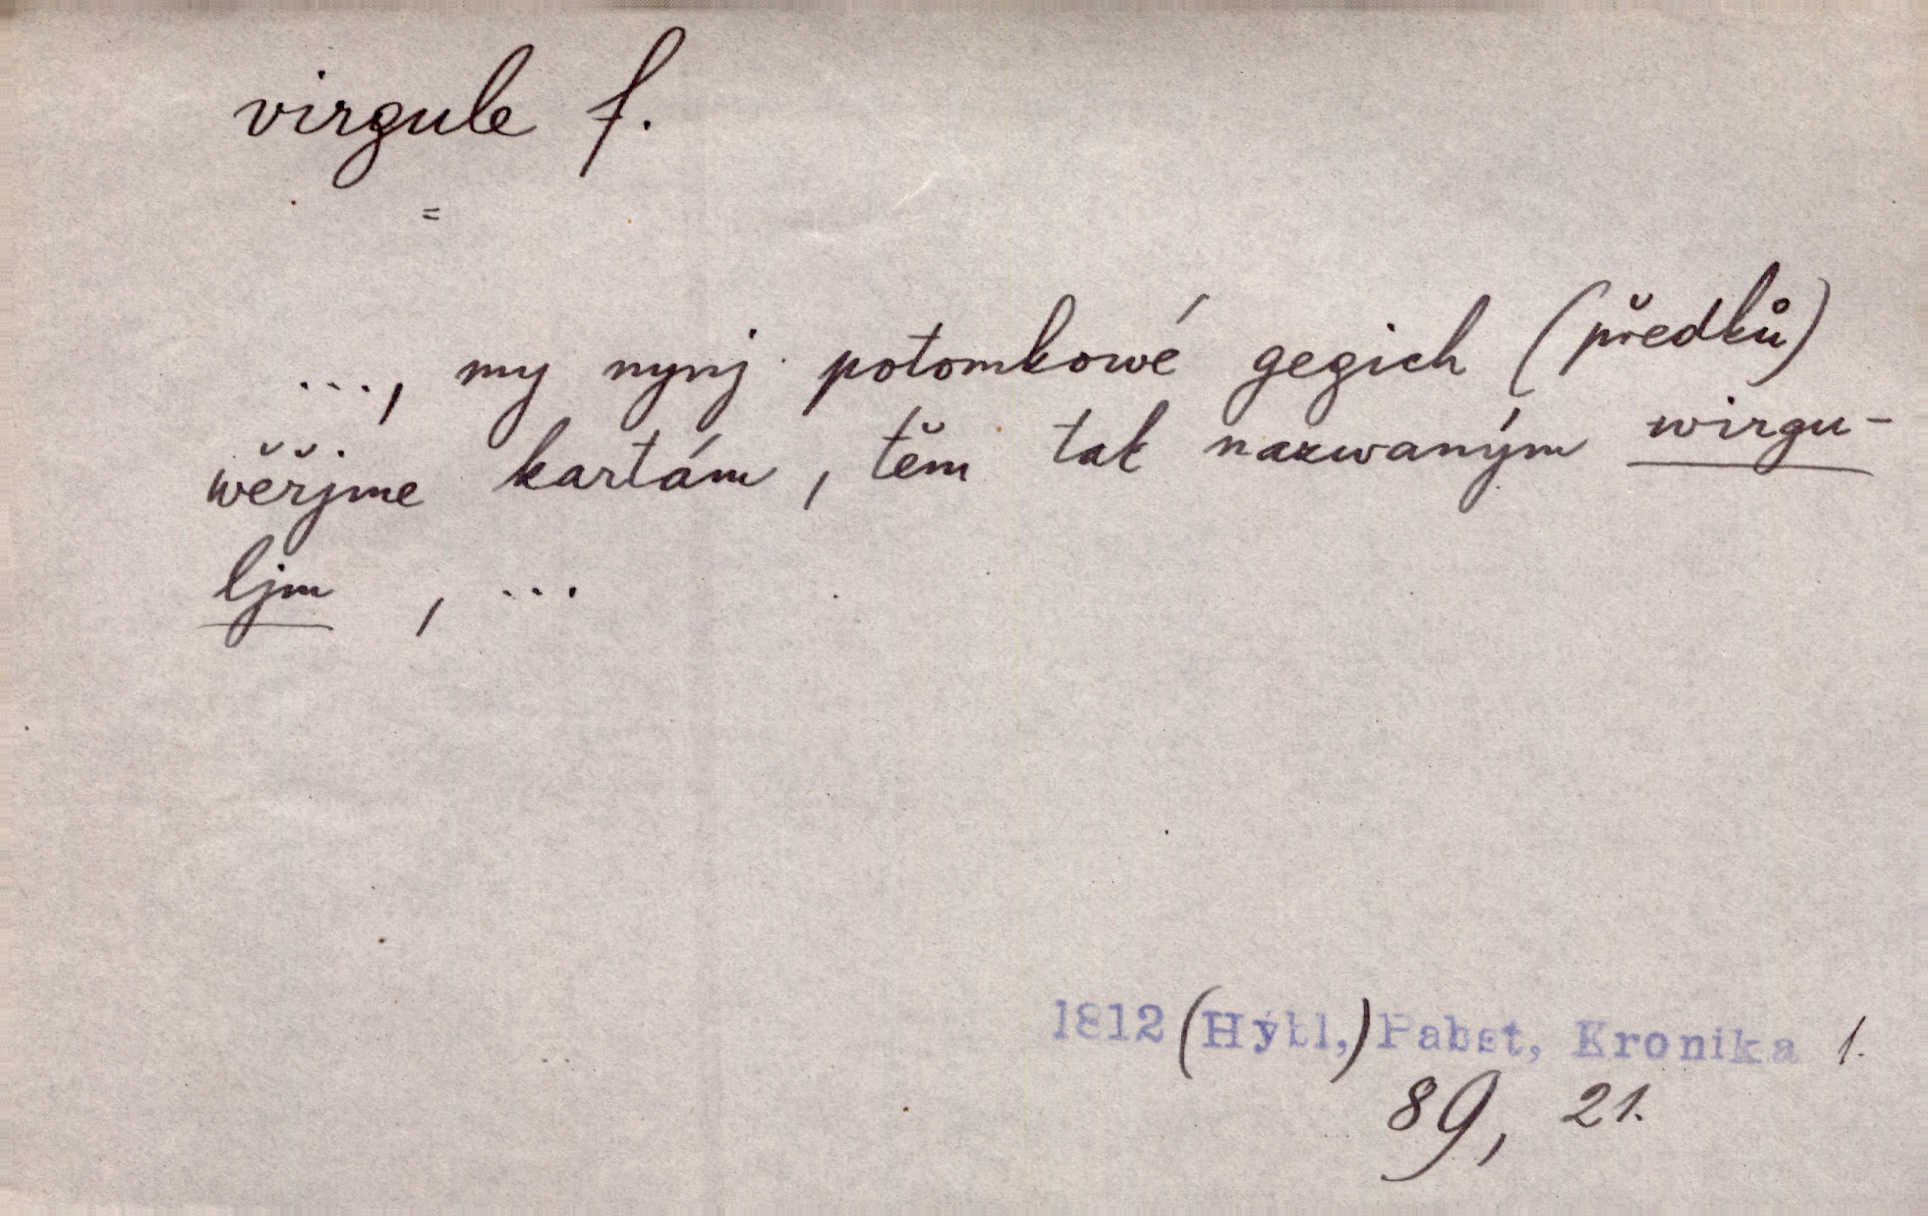 virgule f.
=
..., my nynj potomkowé gegich (předků)
wěřjme kartám, těm tak nazwaným wirgu-
ljm , ...
1812 (Hýbl,) Pabst, Kronika 1.
89, 21.